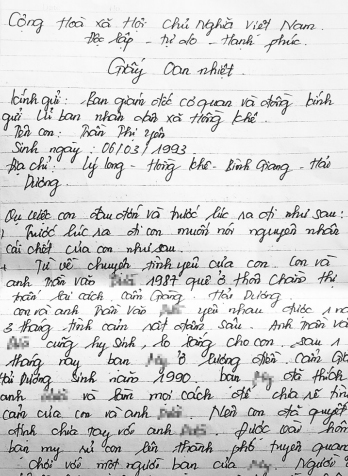 Cộng Hoà xã Hội Chủ Nghĩa Việt Nam.
Độc lập - Tự do - Hạnh phúc.
Giấy Oan nhiệt.
Kính gửi: Ban giám đốc cơ quan và đồng kính
gửi Uỉ ban nhân dân xã Hồng Khê.
Tên con: Trần Thị Yến
Sinh ngày: 06/03/1993.
Địa chỉ: Lý long - Hồng Khê - Bình Giang - Hải
Dương.
con đau đớn và trước lúc ra đi như sau:
Trước lúc ra đi con muốn nói nguyên nhân
cái chết của con như sau.
+ Từ về chuyện tình yêu của con. Con và
anh Trần văn 1987 quê ở thôn Chằm thị
trấn lai cách, Cẩm Giàng. Hải Dương.
con và anh Trần văn yêu nhau được 1 năm
3 tháng, tình cảm rất đậm sâu. Anh Trần văn
cũng hy sinh, lo lắng cho con, sau 1
tháng nay bạn ở lương điền. Cẩm Già
Hải Dương sinh năm 1990. bạn đã thích
anh và làm mọi cách để chia rẽ tìn
cảm của con và anh Nên con đã quyết
định chia tay với anh được vài hôm
bạn my rủ con lên thành phố
chơi với một người bạn của Người